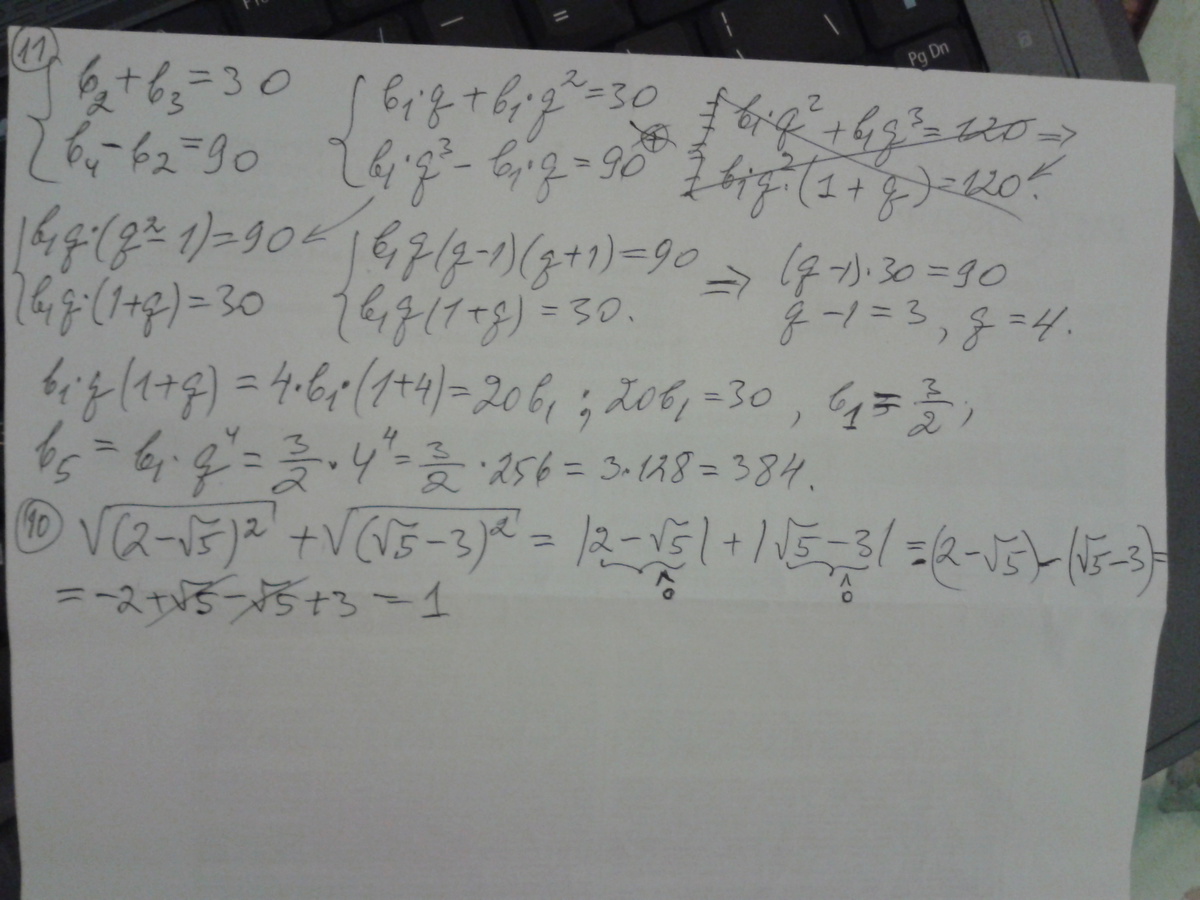 Pg Dn
11
b₂ + b₃ = 30
b₄ - b₂ = 90
b₁·q + b₁·q² = 30
b₁·q³ - b₁·q = 90 ⊕
b₁·q² + b₁q³ = 120 ⇒
b₁q²·(1 + q) = 120.
b₁q·(q² - 1) = 90 ←
b₁q·(1+q) = 30
b₁q(q-1)(q+1) = 90
b₁q(1+q) = 30.
⇒ (q-1)·30 = 90
q - 1 = 3, q = 4.
b₁·q(1+q) = 4·b₁·(1+4) = 20b₁; 20b₁ = 30, b₁ = 3/2;
b₅ = b₁·q⁴ = 3/2·4⁴ = 3/2·256 = 3·128 = 384.
10 √(2-√5)² + √(√5-3)² = |2-√5| + |√5-3| = -(2-√5) - (√5-3) =
^ ^
0 0
= -2+√5-√5+3 = 1